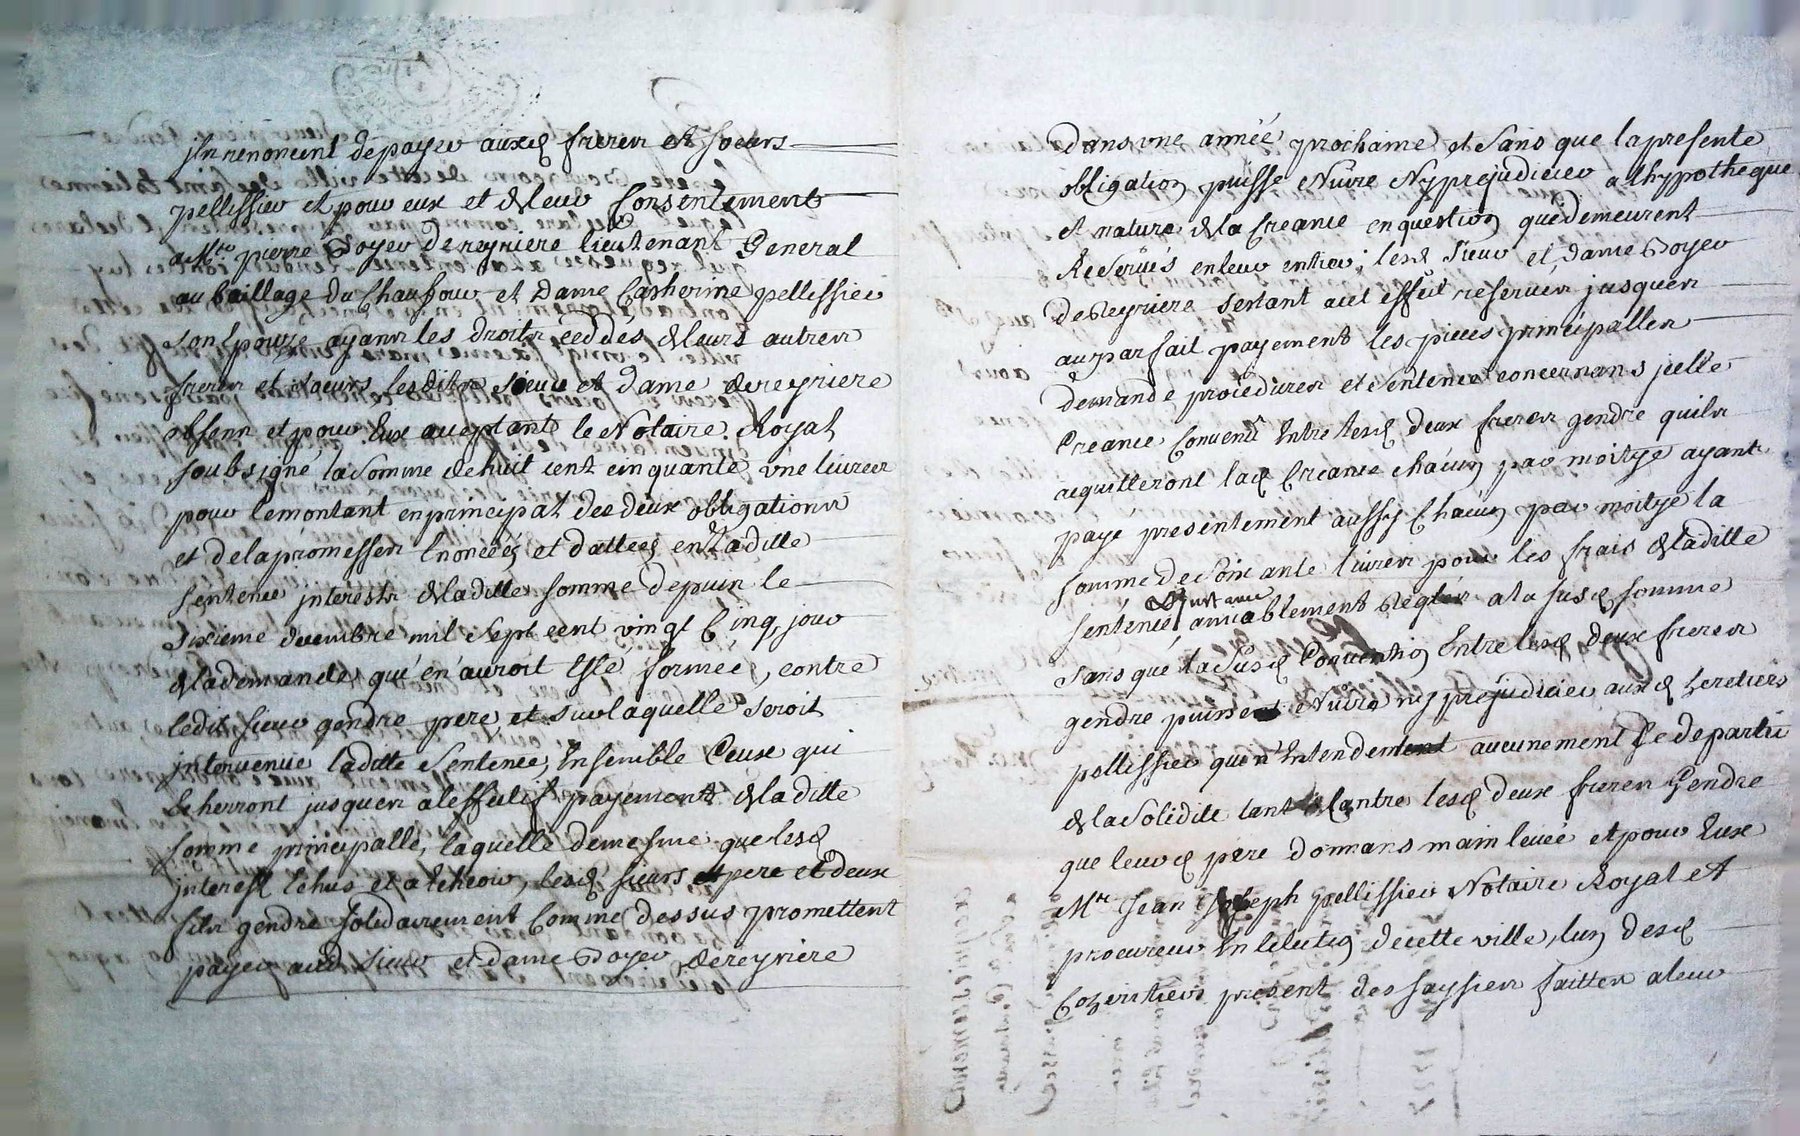 renoncent de payer auxd freres et soeurs
pellissier et pour eux et de leur Consentement
a Mtre pierre Boyer dereyriere lieutenant General
au baillage du Chaufour et Dame Catherine pellissier
son Epouze ayant les droits ceddés de leurs autres
freres et soeurs, lesdits sieur et dame dereyriere
absens et pour Eux acceptant le Notaire Royal
soubsigné, la somme de huit cent cinquante une livres
pour le montant en principal des deux obligations
et de la promesses Enoncéés et dattées en Laditte
sentence interests de laditte somme depuis le
sixieme decembre mil sept cent vingt Cinq, jour
de la demande qu'en auroit Esté formée, contre
ledit sieur gendre pere et sur laquelle seroit
intervenue laditte sentence, Ensemble Ceux qui
Echerront jusques a leffectif payement de la ditte
somme principalle, laquelle de mesme que lesd
interest Echus et a Echeoir, lesd sieurs pere et deux
fils gendre solidairement Comme dessus promettent
payer aud sieur et dame Boyer dereyriere
dans une année prochaine et sans que la presente
obligation puisse Nuire Ny prejudicier a lhypotheque
et nature de la Creance en question que demeurent
Reservés en leur entier; lesd sieur et dame Boyer
dereyriere sertant aud effet reserver jusques
au parfait payement les pieces principalles
demande procedures et sentence concernans jcelle
Creance Convenu Entre lesd deux freres gendre quils
acquitteront lad Creance chacun par moitye ayant
paye presentement aussy Chacun par moitye la
somme de soixante livres pour les frais de laditte
sentence amiablement Reglés a la susd somme
sans que la susd Convention Entre lesd deux freres
gendre puisse Nuire ny prejudicier auxd heretiers
pellissier qu n'Entendent aucunement se departir
de la solidité tant Contre lesd deux freres Gendre
que leurd pere donnans main levée et pour Eux
Mtre Jean Joseph pellissier Notaire Royal et
procureur En lelection de cette ville, lun desd
Coheritiers present des saysies faittes a leur